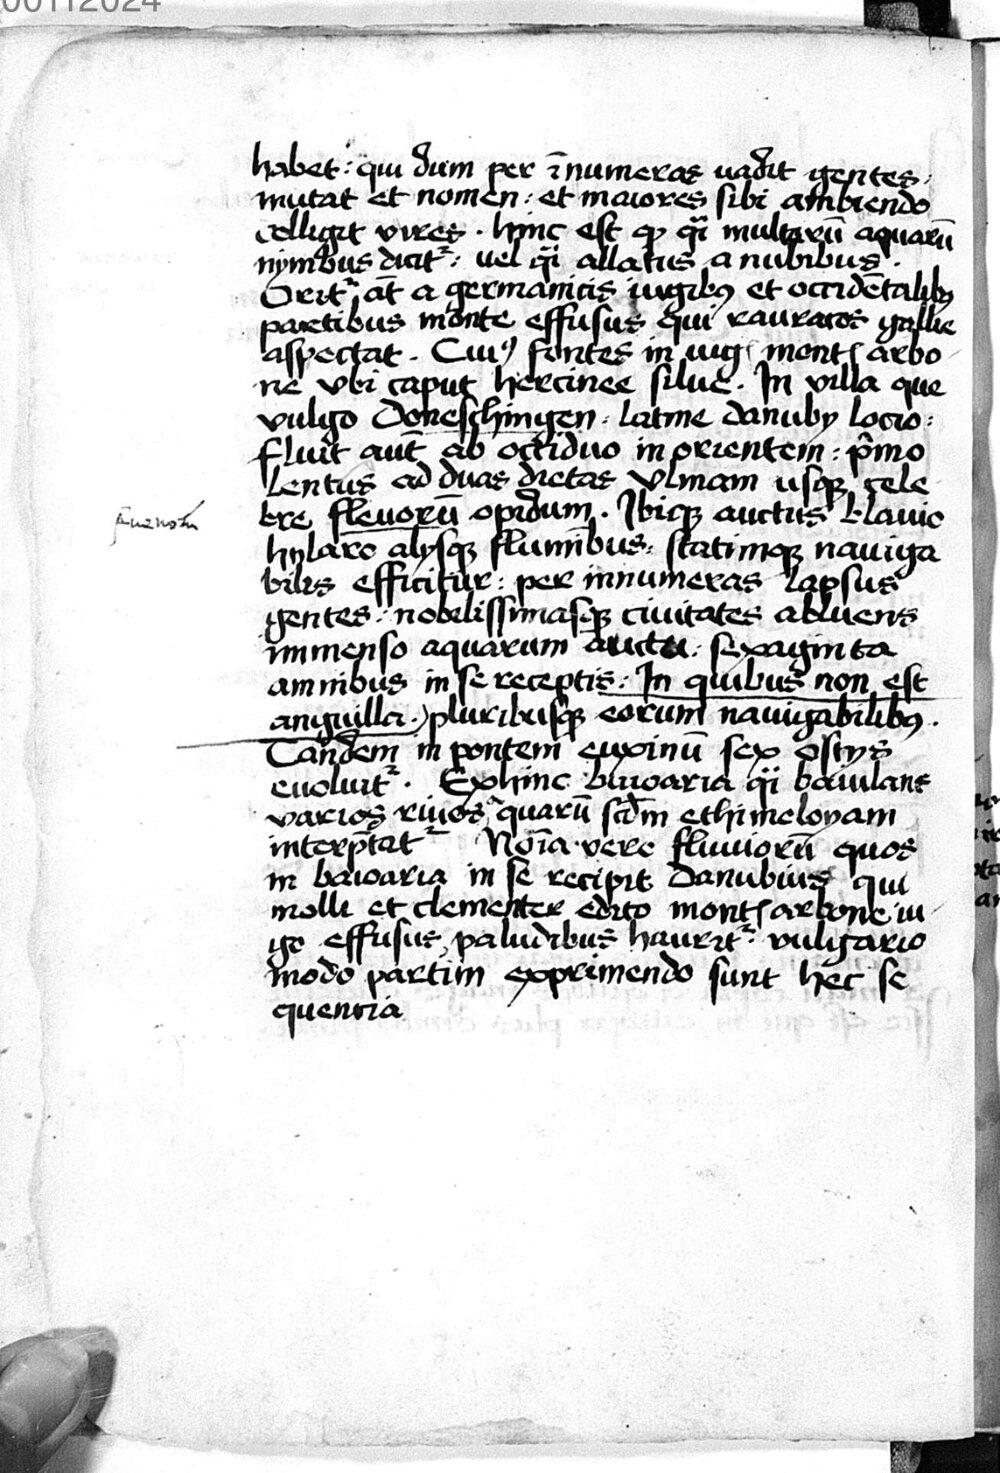 00112024
habet : qui dum per īnumeras uadit gentes :
mutat et nomen : et maiores sibi ambiendo
colligit vires . hinc est ꝙ q̄i multarū aquarū
nymbus dicitᷣ : vel q̄i allatus a nubibus .
Oritᷣ aūt a germanicis iugibꝰ et occidētalibꝰ
partibus monte effusus qui rauracos gallie
aspectat . Cuiꝰ fontes in iugꝭ montꝭ arbo
ne vbi caput hercinee silue . In villa que
vulgo Doneschingen : latine danubÿ locio :
fluit aūt ab occiduo in orientem : p̄mo
lentus ad duas dietas vlmam usqꝫ cele
bre fleuorū opidum . Ibiqꝫ auctus blauio
hylaro alÿsqꝫ fluminibus : statimqꝫ nauiga
bilis efficitur : per innumeras lapsus
gentes : nobelissimasqꝫ ciuitates abluens
immenso aquarum auctu : sexaginta
amnibus in se receptis : In quibus non est
anguilla . pluribusqꝫ eorum nauigabilibꝰ .
Tandem in pontem euxinū sex ostÿs
euoluitᷣ . Exhinc baioaria q̄i baiulans
varios riuos quarū scd̄m ethimeloyam
interp̄tatᷣ Noīa vero fluuiorū quos
in baioaria in se recipit danubius qui
molli et clementer edito montꝭ arbone iu
go effusus paludibus hauritᷣ vulgario
modo partim exprimendo sunt hec se
quencia